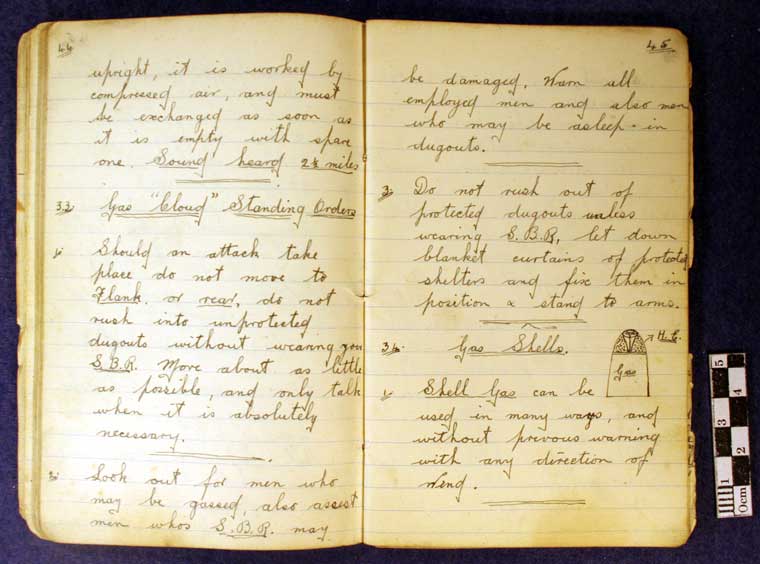 44
upright, it is worked by
compressed air, and must
be exchanged as soon as
it is empty with spare
one. Sound heard 2½ miles
33. Gas "Cloud" Standing Orders
1. Should an attack take
place do not move to
Flank. or rear, do not
rush into unprotected
dugouts without wearing your
S.B.R. Move about as little
as possible, and only talk
when it is absolutely
necessary.
2. Look out for men who
may be gassed, also assist
men whos S.B.R. may
45
be damaged. Warn all
employed men and also men
who may be asleep in
dugouts.
3. Do not rush out of
protected dugouts unless
wearing S.B.R. let down
blanket curtains of protected
shelters and fix them in
position & stand to arms.
34. Gas Shells.
H.E.
Gas
1. Shell Gas can be
used in many ways, and
without prevous warning
with any direction of
Wind.
0cm 1 2 3 4 5